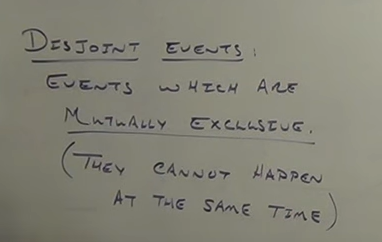 DISJOINT EVENTS:
EVENTS WHICH ARE
MUTUALLY EXCLUSIVE.
(THEY CANNOT HAPPEN
AT THE SAME TIME)